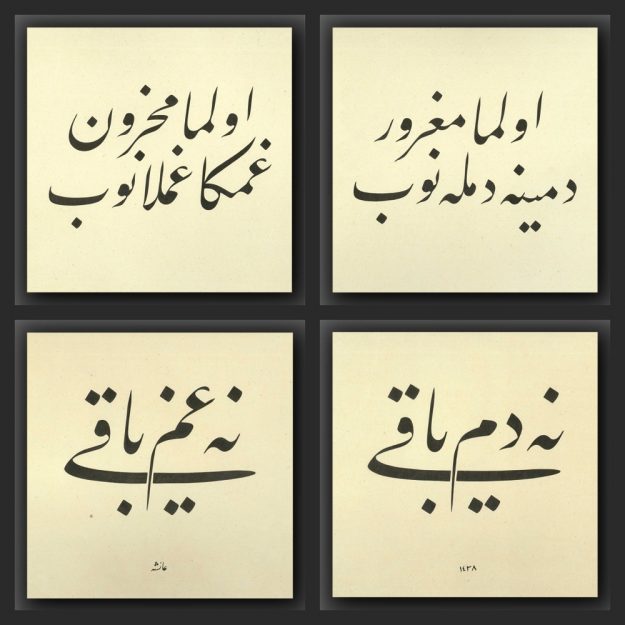 اولما مغرور
دمینه دمله نوب
اولما محزون
غمكا غملانوب
نه دم باقی
١٤٣٨
نه غم باقی
عائشه